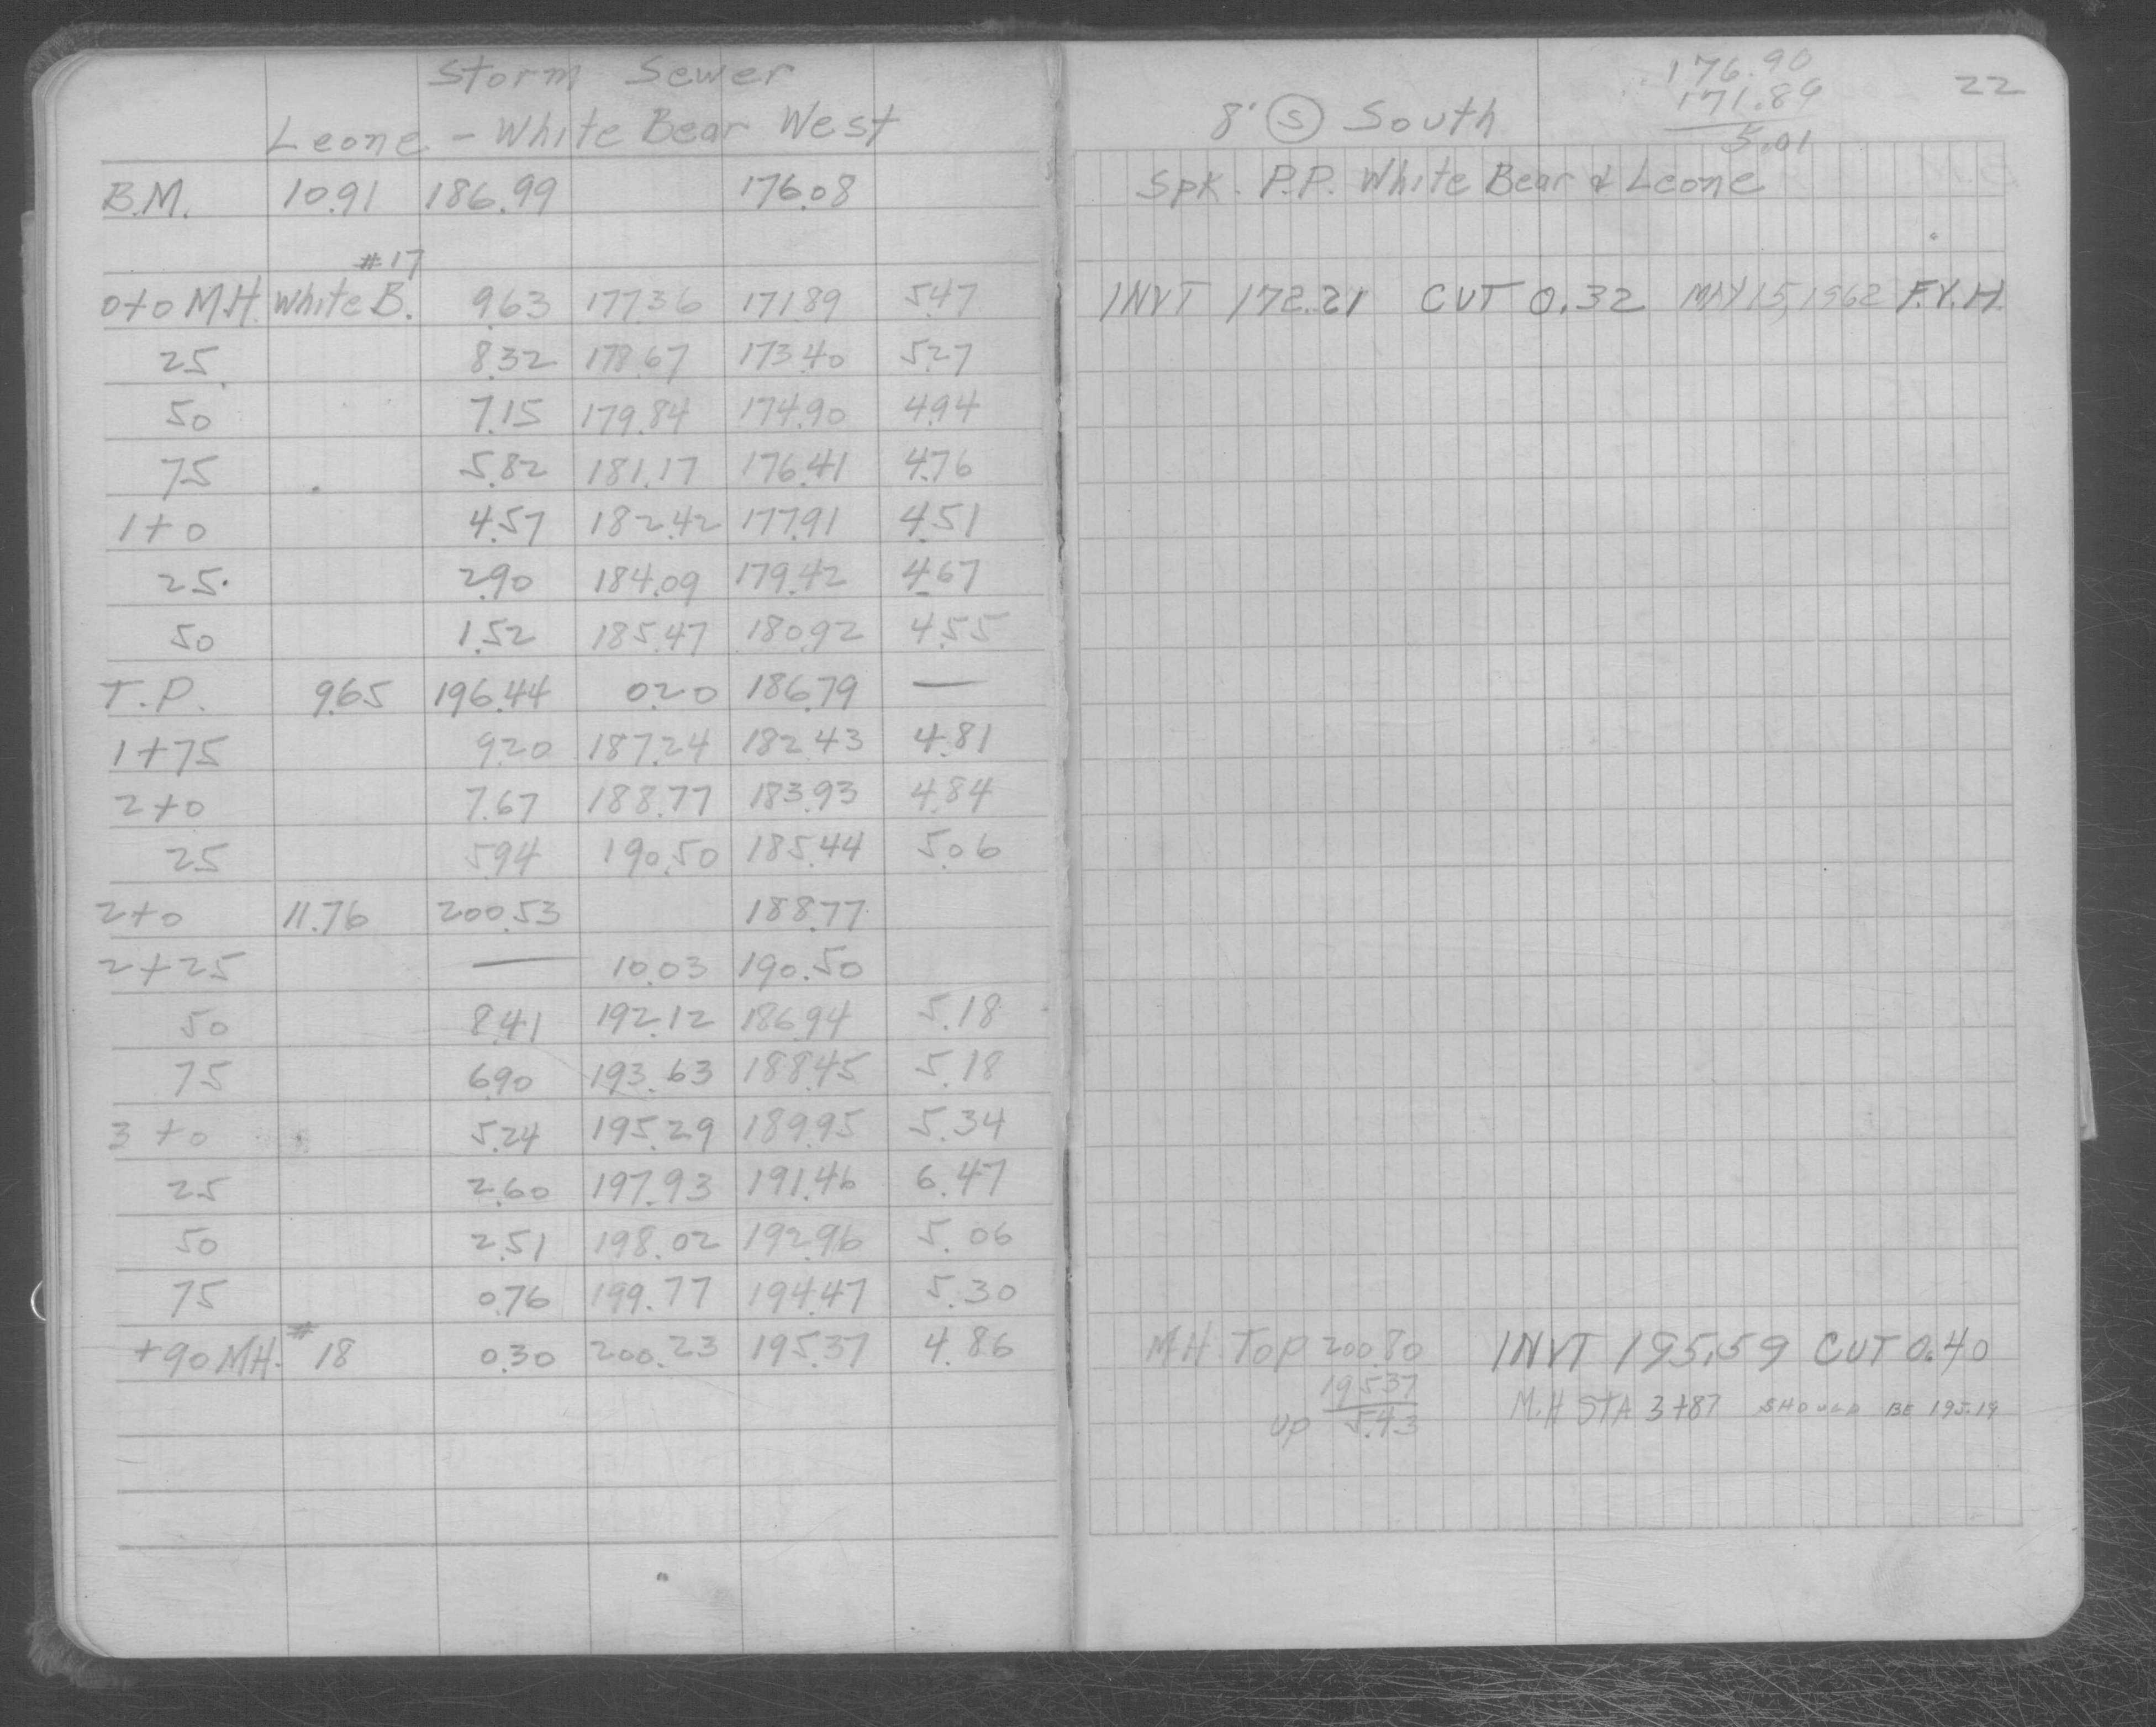 Storm Sewer
Leone - White Bear West
B.M. 10.91 186.99 176.08
#17
0+0 M.H. White B. 9.63 177.36 171.89 5.47
25 8.32 178.67 173.40 5.27
50 7.15 179.84 174.90 4.94
75 5.82 181.17 176.41 4.76
1+0 4.57 182.42 177.91 4.51
25 2.90 184.09 179.42 4.67
50 1.52 185.47 180.92 4.55
T.P. 9.65 196.44 0.20 186.79 —
1+75 9.20 187.24 182.43 4.81
2+0 7.67 188.77 183.93 4.84
25 5.94 190.50 185.44 5.06
2+0 11.76 200.53 188.77
2+25 — 10.03 190.50
50 8.41 192.12 186.94 5.18
75 6.90 193.63 188.45 5.18
3+0 5.24 195.29 189.95 5.34
25 2.60 197.93 191.46 6.47
50 2.51 198.02 192.96 5.06
75 0.76 199.77 194.47 5.30
+90 MH. #18 0.30 200.23 195.37 4.86
22
176.90
171.89
5.01
8' S South
Spk. P.P. White Bear & Leone
INVT 172.21 CUT 0.32 MAY 15, 1962 F.Y.H.
M.H. Top 200.80 INVT 195.59 CUT 0.40
195.37
up 5.43
M.H STA 3+87 SHOULD BE 195.19